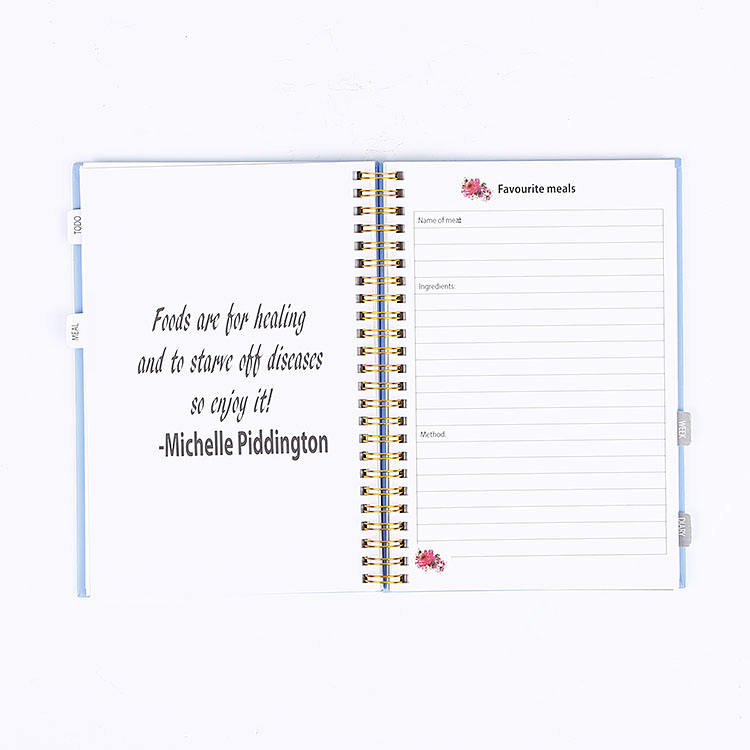 TODO
MEAL
Foods are for healing
and to starve off diseases
so enjoy it!
-Michelle Piddington
Favourite meals
Name of meal:
Ingredients:
Method:
WEEK
DIARY